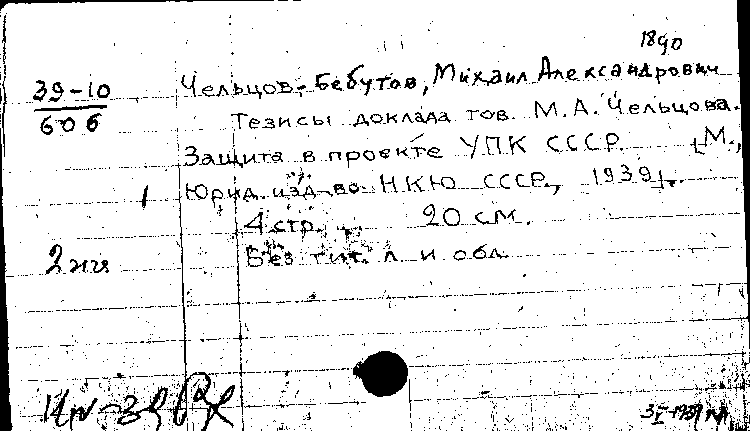 1890
39-10
606
Чельцов-Бебутов, Михаил Александрович
Тезисы доклада тов. М.А. Чельцова.
Защита в проекте УПК СССР. [М.,
1 Юрид. изд-во НКЮ СССР, 1939].
4 стр. 20 см.
2
Без тит. л. и обл.